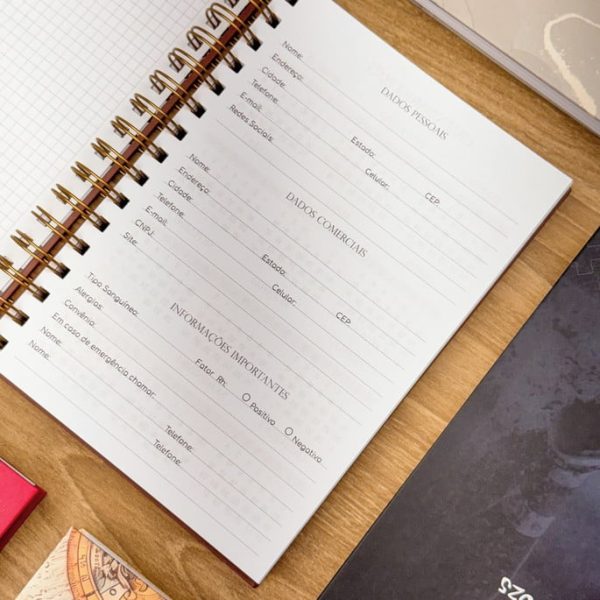 DADOS PESSOAIS
Nome:
Endereço:
Cidade: Estado: CEP:
Telefone: Celular:
E-mail:
Redes Sociais:
DADOS COMERCIAIS
Nome:
Endereço:
Cidade: Estado: CEP:
Telefone: Celular:
E-mail:
CNPJ:
Site:
INFORMAÇÕES IMPORTANTES
Tipo Sanguíneo: Fator Rh: Positivo Negativo
Alergias:
Convênio:
Em caso de emergência chamar:
Nome: Telefone:
Nome: Telefone: